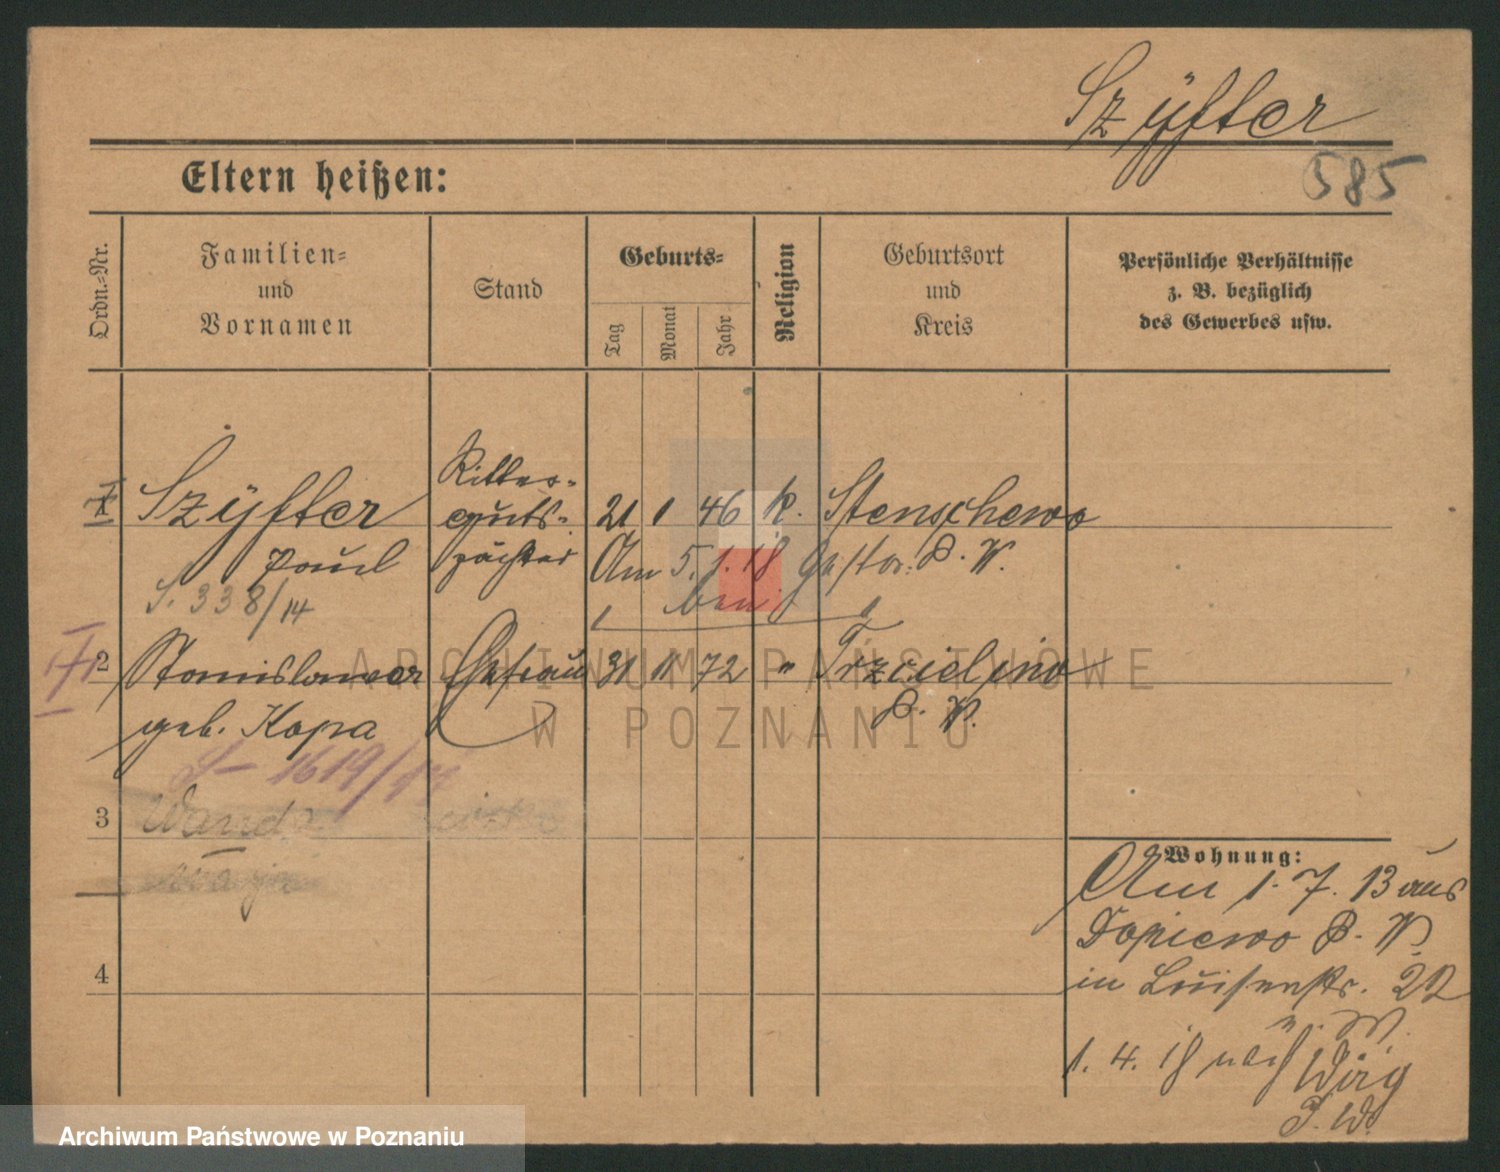 Szÿfter
585
Eltern heißen:
Ordn.-Nr.
Familien-
und
Vornamen
Stand
Geburts-
Tag
Monat
Jahr
Religion
Geburtsort
und
Kreis
Persönliche Verhältnisse
z. B. bezüglich
des Gewerbes usw.
1 Szÿfter Ritter- 21 1 46 k. Stenschewo
guts-
Paul pächter Am 5. 1. 18 gestor. P. W.
S. 338/14
2 Stanislawa Ehefrau 31 11 72 " Trzcielino
geb. Kopa P. W.
1619/14
3 Wanda
4
Wohnung:
Am 1. 7. 13 aus
Dopiewo P. W.
in Luisenstr. 22
1. 4. 18 nach
ARCHIWUM PAŃSTWOWE
W POZNANIU
Archiwum Państwowe w Poznaniu